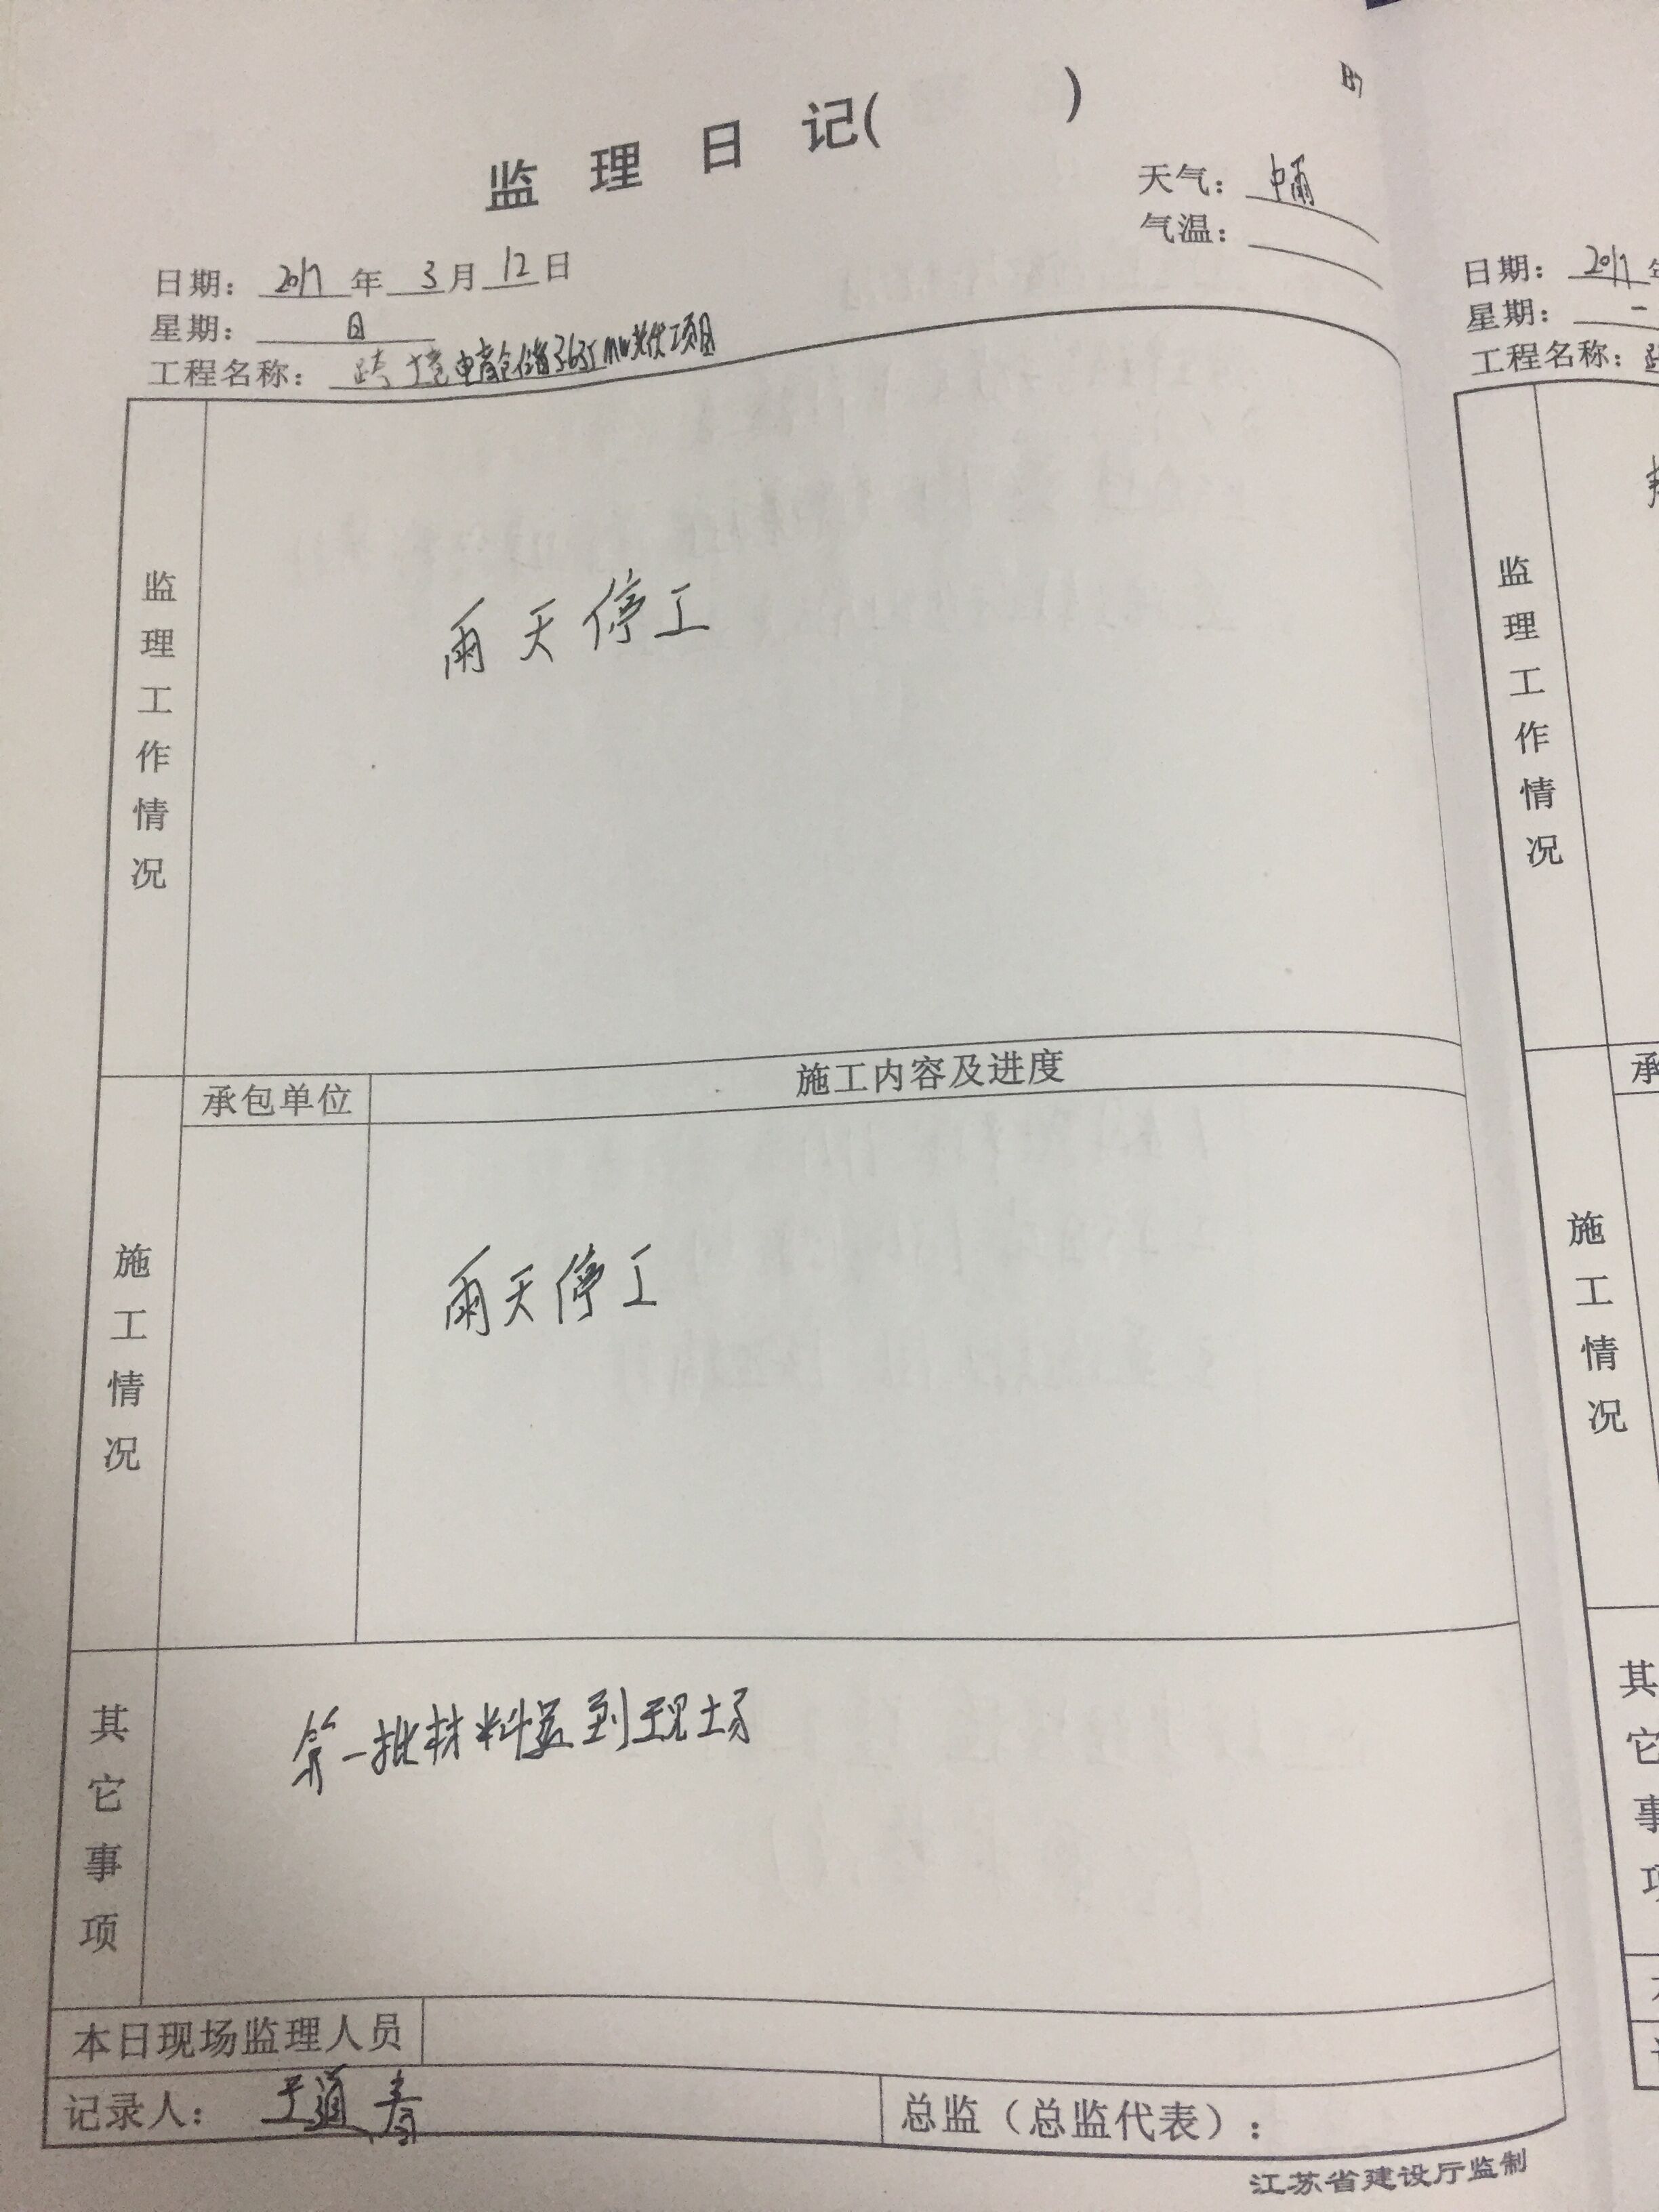 监理日记(        )
天气：中雨
气温：
日期：2017年3月12日
星期：日
工程名称：跨境电商仓储3.635MW光伏项目
监理工作情况
雨天停工
承包单位
施工内容及进度
施工情况
雨天停工
其它事项
第一批材料运到现场
本日现场监理人员
记录人：
总监（总监代表）：
江苏省建设厅监制
日期：2017年
星期：一
工程名称：跨
监理工作情况
承
施工情况
其它事项